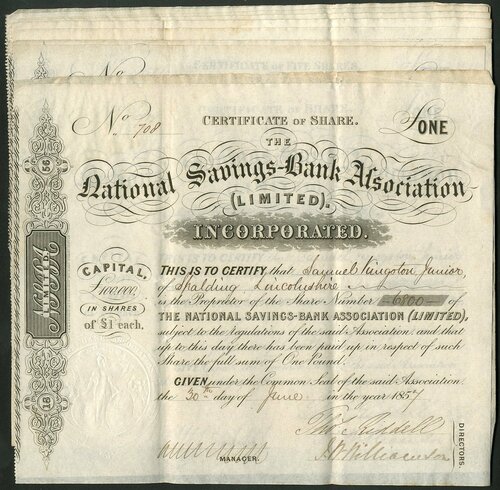 CERTIFICATE OF FIVE SHARES.
No
No 708
CERTIFICATE OF SHARE.
£ONE
THE
National Savings-Bank Association
(LIMITED).
INCORPORATED.
56
18
LIMITED
CAPITAL,
£100,000,
IN SHARES
of £1 each.
THIS IS TO CERTIFY that Samuel Kingston Junior,
of Spalding Lincolnshire
is the Proprietor of the Share Number 6800 of
THE NATIONAL SAVINGS-BANK ASSOCIATION (LIMITED),
subject to the regulations of the said Association, and that
up to this day there has been paid up in respect of such
Share the full sum of One Pound.
GIVEN under the Common Seal of the said Association,
the 30th day of June in the year 1857
Thos Riddell
J. W. Williamson
MANAGER.
DIRECTORS.